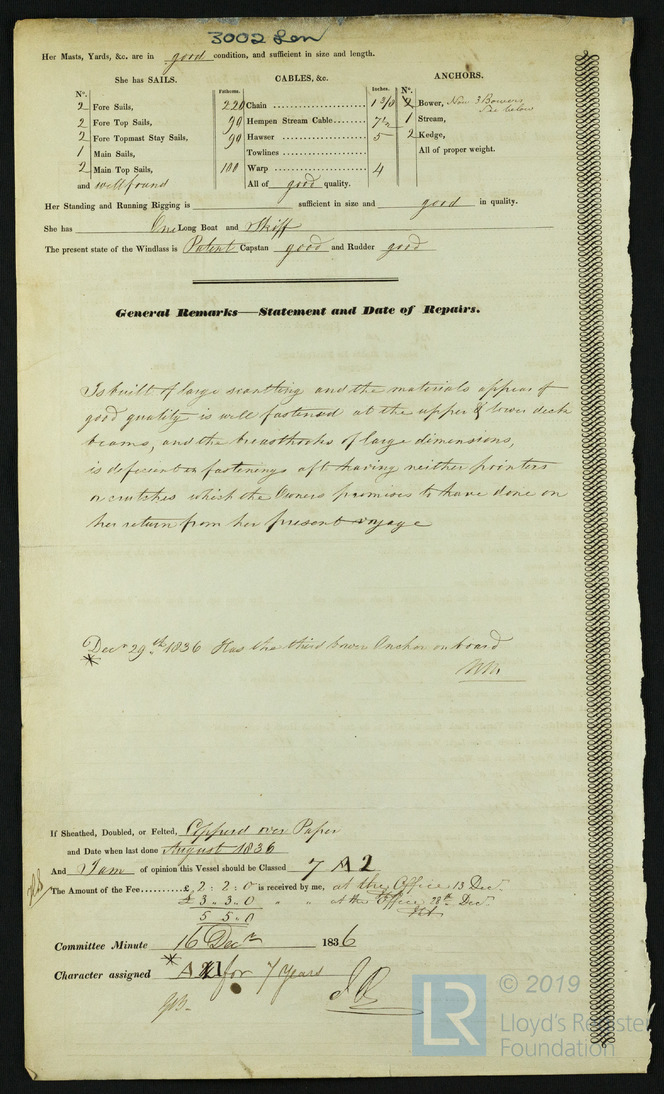 3002 Lon
Her Masts, Yards, &c. are in good condition, and sufficient in size and length.
She has SAILS.
CABLES, &c.
ANCHORS.
N°.
Fathoms.
Inches.
N°.
2 Fore Sails,
220 Chain 1 3/8
2 Bower, Now 3 Bowers
See below
2 Fore Top Sails,
90 Hempen Stream Cable 7½
1 Stream,
2 Fore Topmast Stay Sails,
90 Hawser 5
2 Kedge,
1 Main Sails,
Towlines
All of proper weight.
2 Main Top Sails,
100 Warp 4
and well found
All of good quality.
Her Standing and Running Rigging is sufficient in size and good in quality.
She has One Long Boat and Skiff
The present state of the Windlass is Patent Capstan good and Rudder good
General Remarks—Statement and Date of Repairs.
Is built of large scantling and the materials appear of
good quality is well fastened at the upper & lower deck
beams, and the breasthooks of large dimensions,
is deficient in fastenings aft having neither pointers
or crutches which the Owners promises to have done on
her return from her present voyage
Decr 29th 1836 Has the third Bower Anchor on board
*
If Sheathed, Doubled, or Felted, Copperd over Paper
and Date when last done August 1836
And I am of opinion this Vessel should be Classed 7 A
The Amount of the Fee £ 2 : 2 : 0 is received by me, at the Office 13 Decr
£ 3 . 3 . 0 " " at the Office 28th Decr
5 5 . 0
Committee Minute 16 Decr 1836
*
Character assigned A 1 for 7 Years
© 2019
LR
Lloyd's Register
Foundation